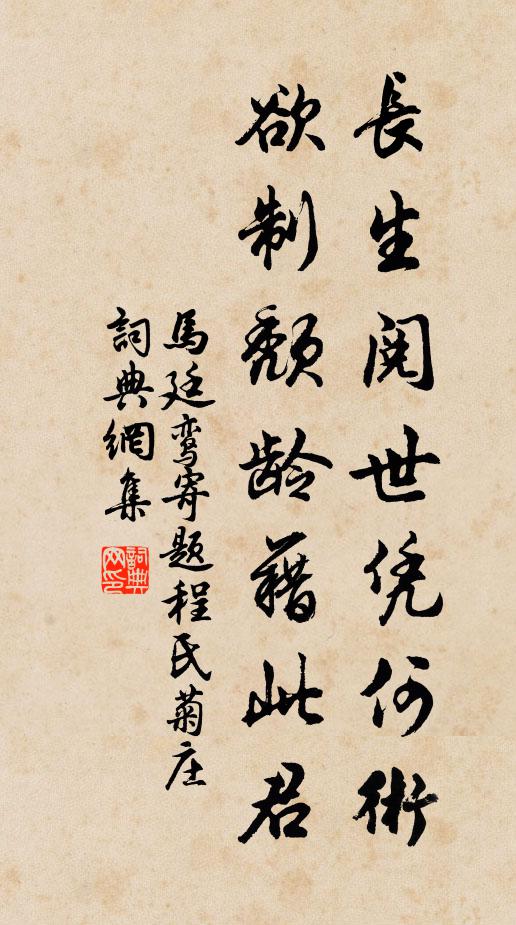 長生閱世凭何術
欲制頹龄藉此君
馬廷鸾寄題程氏菊庄
詞典網集
詞典网印